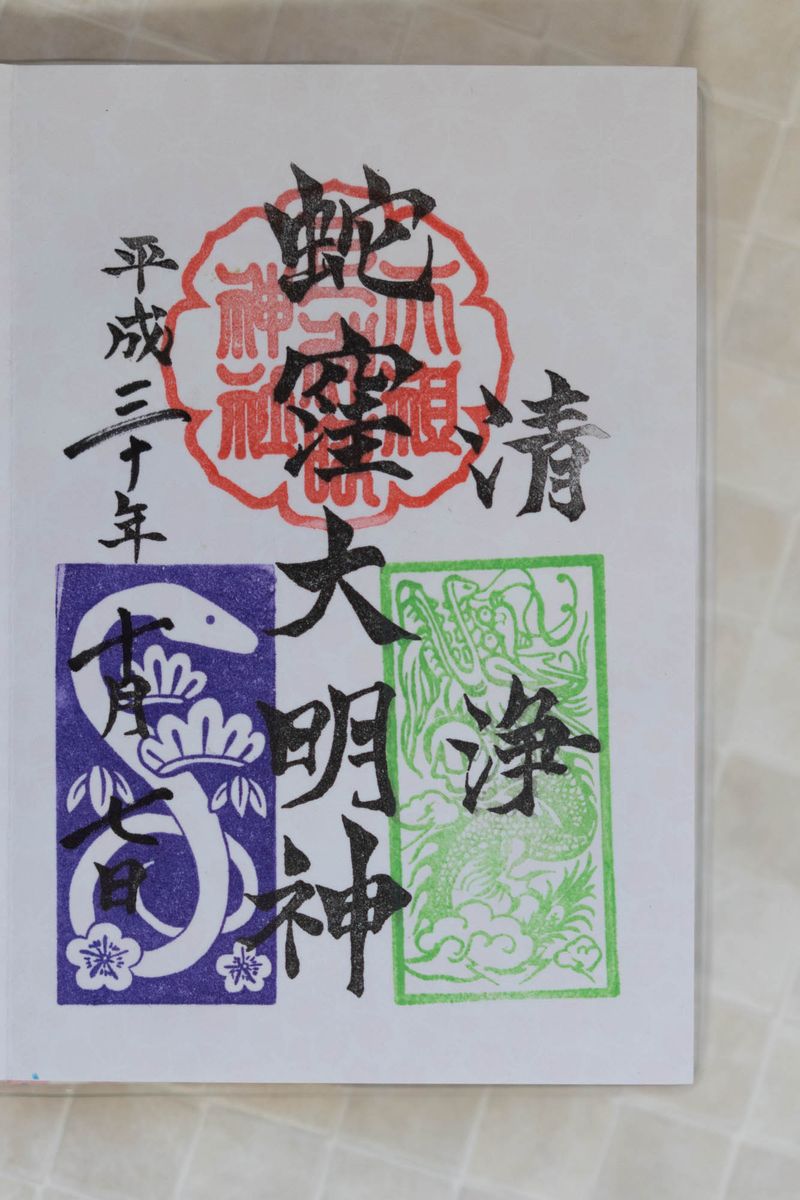 清浄
蛇窪大明神
天祖
神社
平成三十年十月七日